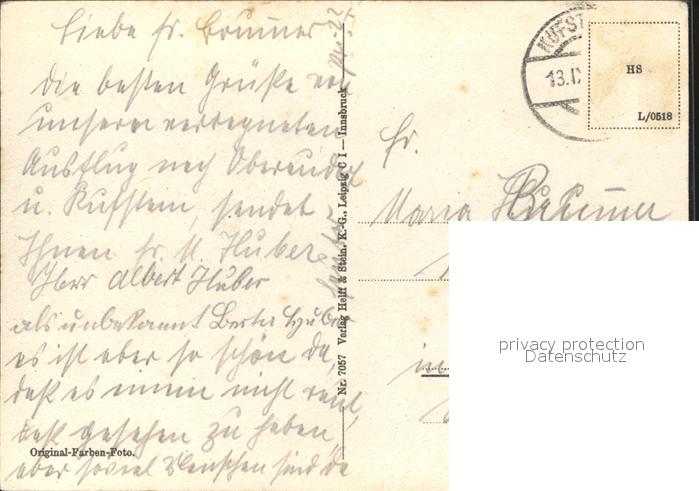 Liebe Fr. Brunner
Die besten Grüße von
unserm verregneten
Ausflug nach Oberaudorf
u. Kufstein, sendet
Ihnen Fr. M. Huber
Herr Albert Huber
als unbekannt Berta Huber
es ist aber so schön da,
daß es einem nicht reut,
daß gesehen zu haben
aber soviel Menschen sind da
Original-Farben-Foto.
Nr. 7057 Verlag Helff & Stein, K.-G., Leipzig C 1 — Innsbruck
KUFST
13.IX
HS
L/0518
Fr.
Maria Brunner
in
privacy protection
Datenschutz